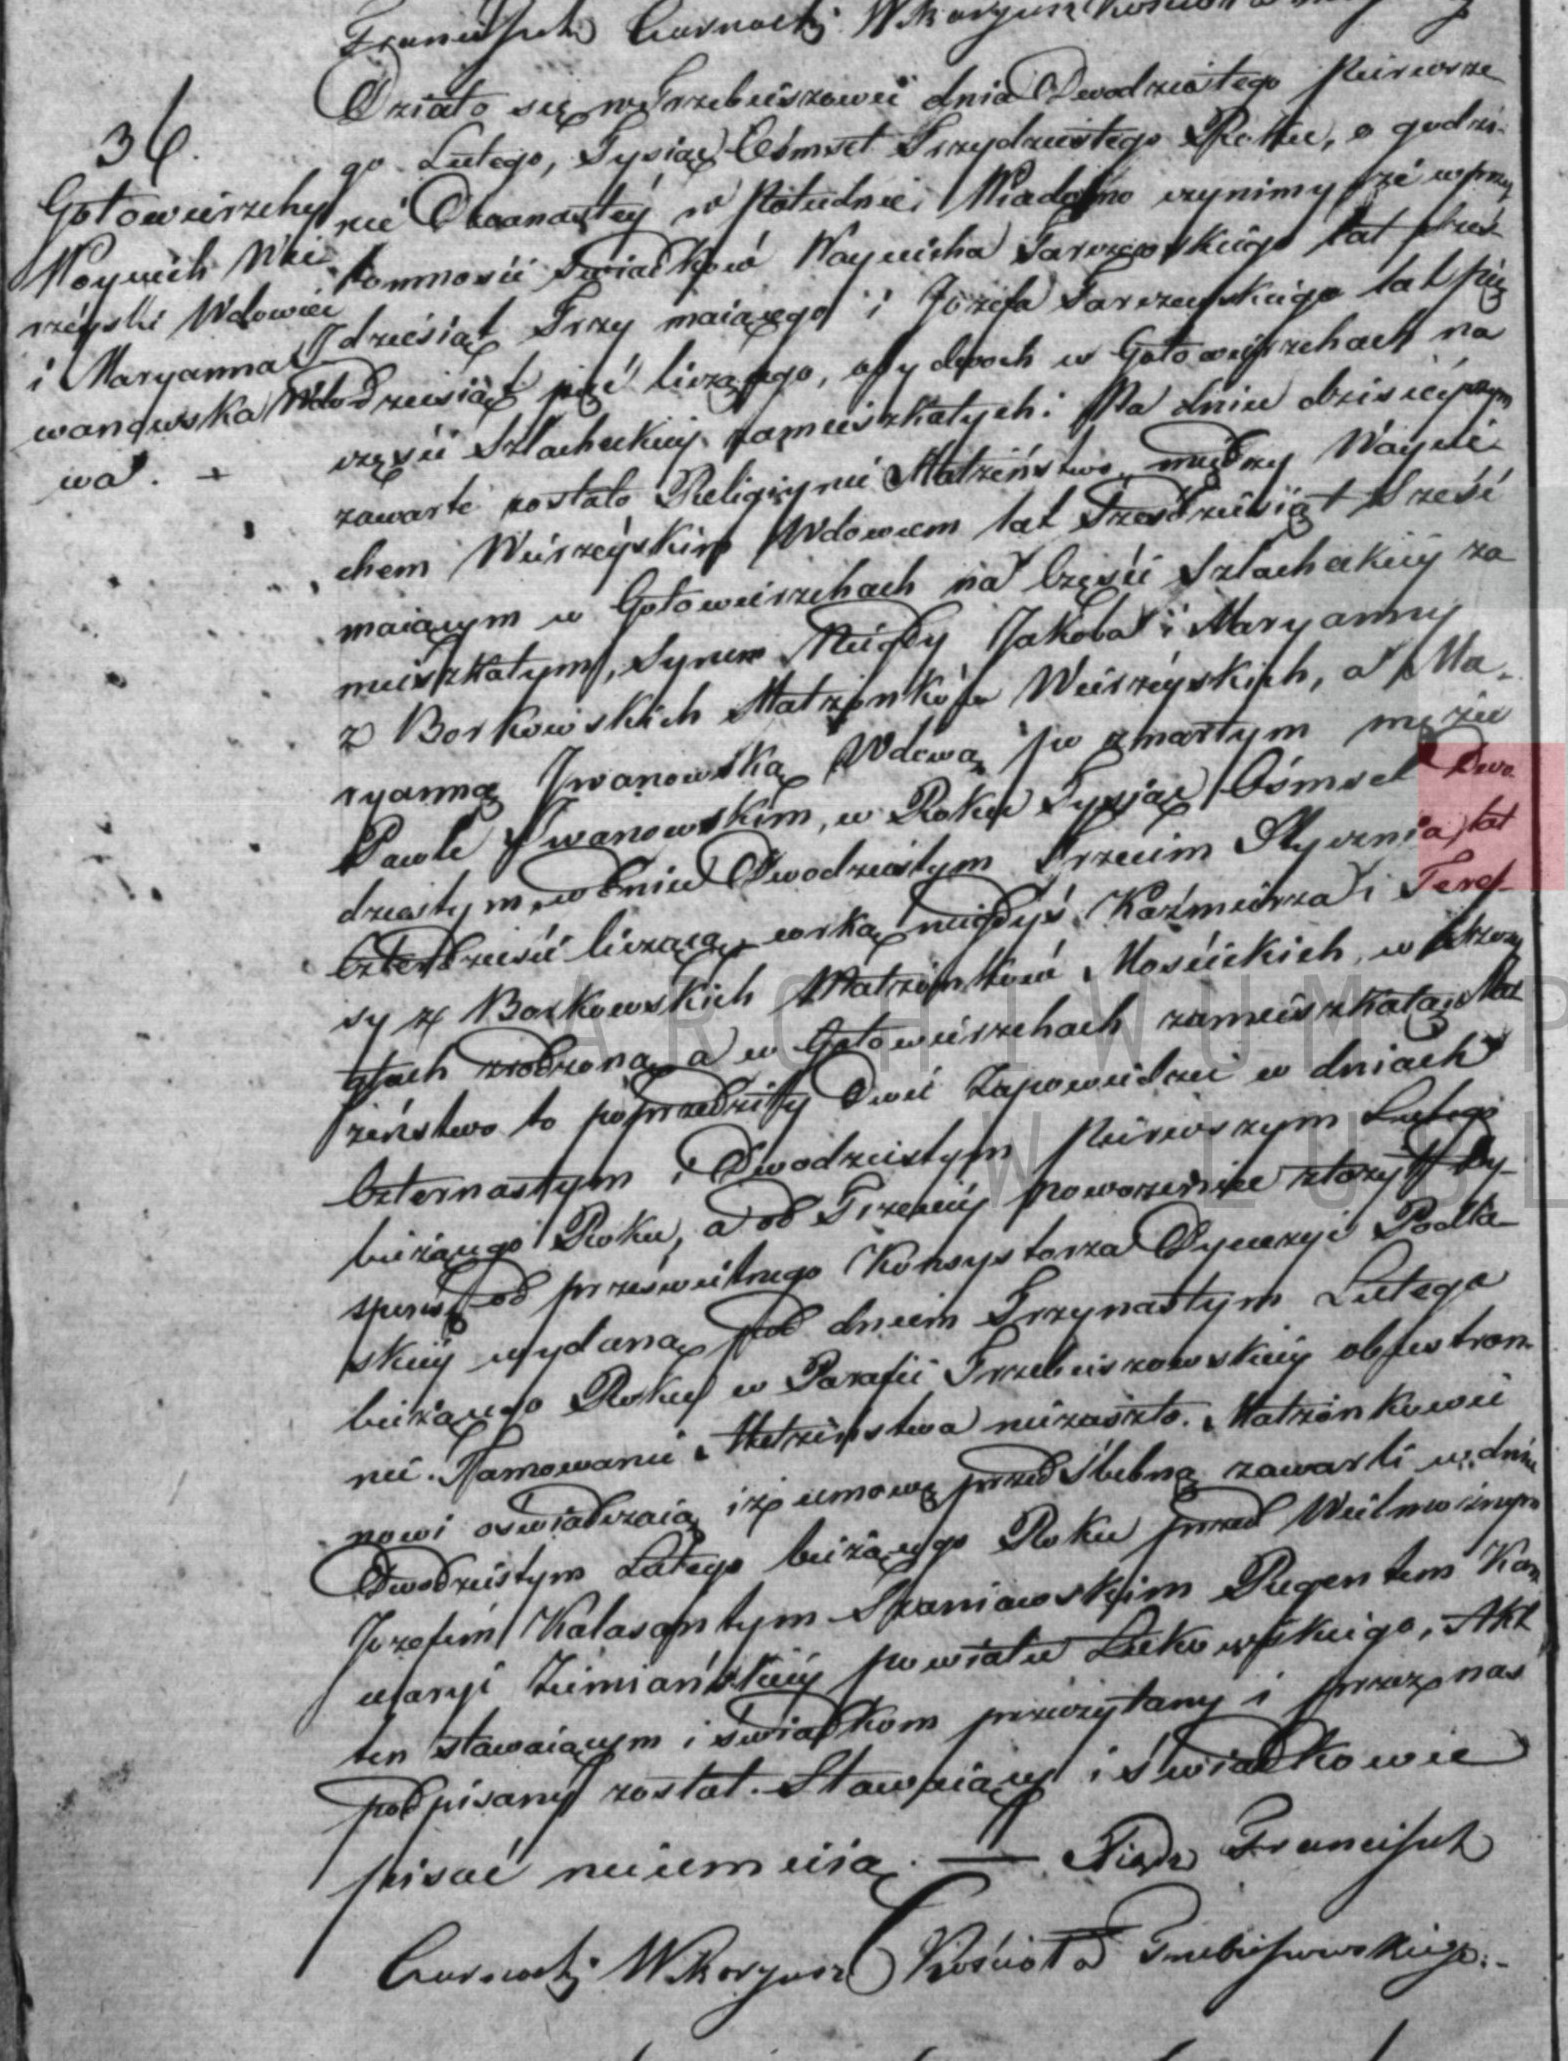 Franciszek Czarnocki Wikaryusz Kościoła
36.
Gołowierzchy
Woyciech Wie
rzeyski Wdowiec
i Maryanna J
wanowska Wdo
wa. +
Działo się w Trzebieszowie dnia Dwodziestego Pierwsze
go Lutego, Tysiąc Ośmset Trzydziestego Roku, o godzi-
nie Dwanastey w Południe. Wiadomo czynimy że w przy
tomności Swiadków Woyciecha Tarczewskiego lat
dziesiąt Trzy maiącego i Józefa Tarczewskiego lat pię
dziesiąt pięć liczącego, obydwoch w Gołowierzchach na
części Szlacheckiey zamieszkałych: Na dniu dzisieyszym
zawarte zostało Religiyne Małżeństwo między Woycie
chem Wierzeyskim Wdowcem lat Sześdziesiąt Sześć
maiącym w Gołowierzchach na Części Szlacheckiey za
mieszkałym, synem Niegdy Jakoba i Maryanny
z Borkowskich Małżonków Wierzeyskich, a Ma-
ryanną Jwanowską Wdową po zmarłym mężu
Pawle Jwanowskim, w Roku Tysiąc Ośmset Dwo
dziestym, w dniu Dwodziestym Trzecim Stycznia, lat
Czterdzieści liczącą, corką niegdyś Kaźmierza i Teres-
sy z Borkowskich Małżonków Mościckich, w
zrodzoną, a w Gołowierzchach zamieszkałą. Mał
żeństwo to poprzedziły Dwie Zapowiedzi w dniach
Czternastym i Dwodziestym Pierwszym Lutego
bieżącego Roku, a od Trzeciey powozenie złożyli Dy-
spensę od prześwietnego Konsystorza Dyecezyi Podla-
skiey wydaną pod dniem Trzynastym Lutego
bieżącego Roku w Parafii Trzebieszowskiey obustron-
nie. Tamowanie Małżeństwa niezaszło. Małżonkowie
nowi oświadczaią iż umowę przedślubną zawarli w dniu
Dwodziestym Lutego bieżącego Roku przed Wielmożnym
Jozefem Kalasantym Szaniawskim Regentem Kan
celaryi Ziemiańskiey powiatu Łukowskiego, Akt
ten stawaiącym i świadkom przeczytany i przez nas
podpisany został. Stawaiący i świadkowie
pisać nieumieią. — Xiądz Franciszek
Czarnocki Wikaryusz Kościoła Trzebieszowskiego.
ARCHIWUM P
W LUBL